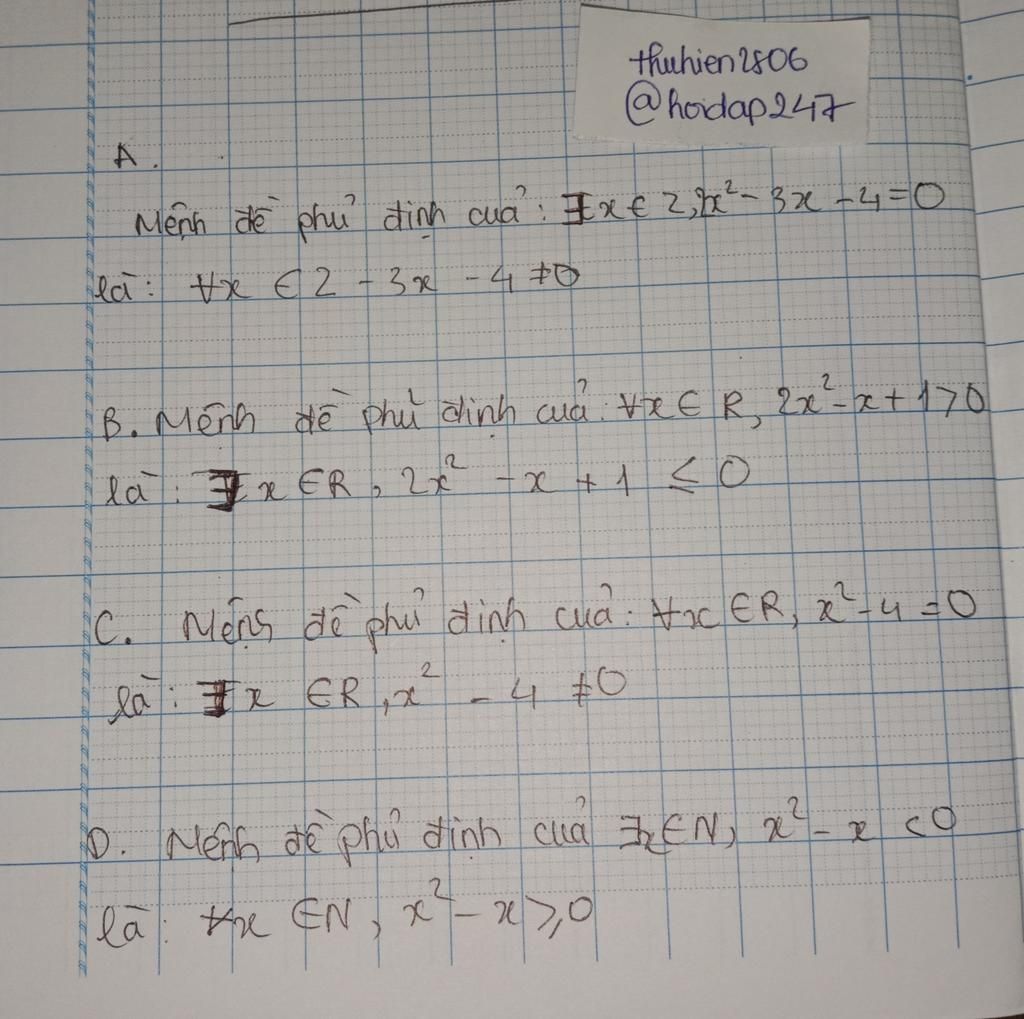 thuhien2806
@hoidap247
A.
Mệnh đề phủ định của: ∃x ∈ Z, 2x² - 3x - 4 = 0
là: ∀x ∈ Z - 3x - 4 ≠ 0
B. Mệnh đề phủ định của: ∀x ∈ R, 2x² - x + 1 > 0
là: ∃x ∈ R, 2x² - x + 1 ≤ 0
C. Mệnh đề phủ định của: ∀x ∈ R, x² - 4 = 0
là: ∃x ∈ R, x² - 4 ≠ 0
D. Mệnh đề phủ định của ∃x ∈ N, x² - x < 0
là: ∀x ∈ N, x² - x ≥ 0